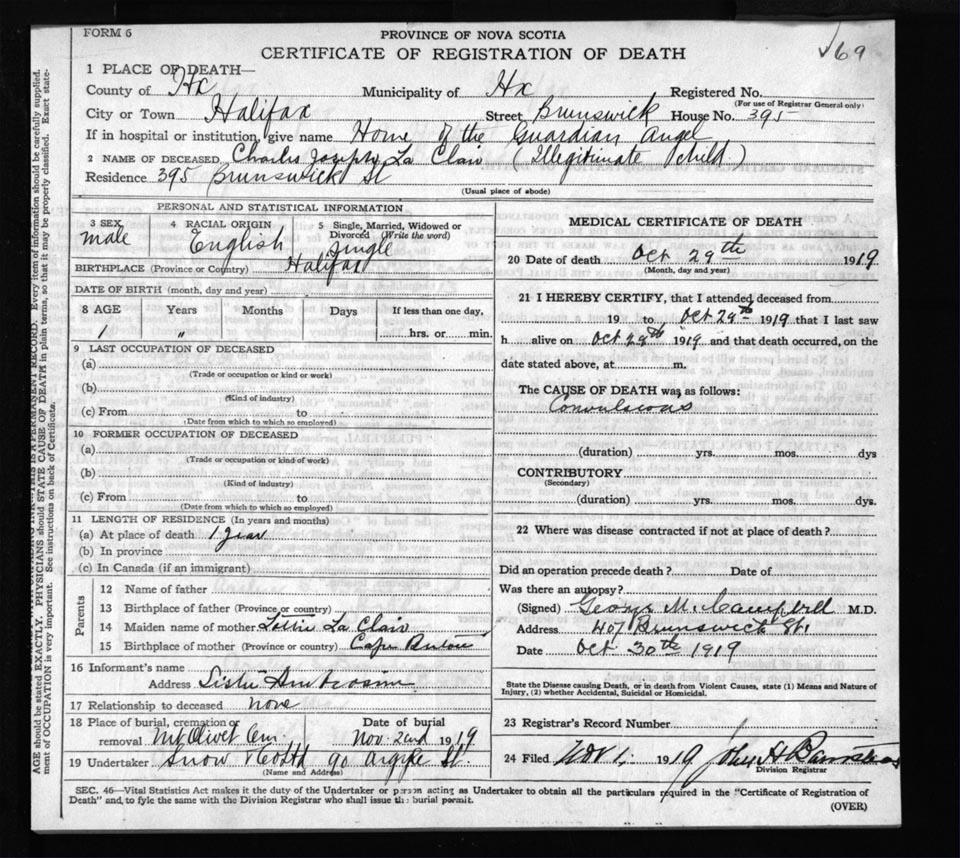 FORM 6
PROVINCE OF NOVA SCOTIA
CERTIFICATE OF REGISTRATION OF DEATH
69
1 PLACE OF DEATH—
County of Hx Municipality of Hx Registered No.
(For use of Registrar General only)
City or Town Halifax Street Brunswick House No. 395
If in hospital or institution, give name Home of the Guardian Angel
2 NAME OF DECEASED Charles Joseph La Clair (Illegitimate child)
Residence 395 Brunswick St
(Usual place of abode)
PERSONAL AND STATISTICAL INFORMATION
3 SEX male
4 RACIAL ORIGIN English
5 Single, Married, Widowed or Divorced (Write the word) Single
BIRTHPLACE (Province or Country) Halifax
DATE OF BIRTH (month, day and year)
8 AGE Years Months Days If less than one day,
1 " hrs. or min.
9 LAST OCCUPATION OF DECEASED
(a)
(Trade or occupation or kind or work)
(b)
(Kind of industry)
(c) From to
(Date from which to which so employed)
10 FORMER OCCUPATION OF DECEASED
(a)
(Trade or occupation or kind of work)
(b)
(Kind of industry)
(c) From to
(Date from which to which so employed)
11 LENGTH OF RESIDENCE (In years and months)
(a) At place of death 1 year
(b) In province
(c) In Canada (if an immigrant)
Parents
12 Name of father
13 Birthplace of father (Province or country)
14 Maiden name of mother Lottie La Clair
15 Birthplace of mother (Province or country) Cape Breton
16 Informant's name
Address Sister Ambrosine
17 Relationship to deceased none
18 Place of burial, cremation or removal Mt Olivet Cem. Date of burial Nov. 2nd 1919
19 Undertaker Snow & Co Ltd 90 Argyle St.
(Name and Address)
MEDICAL CERTIFICATE OF DEATH
20 Date of death Oct 29th 1919
(Month, day and year)
21 I HEREBY CERTIFY, that I attended deceased from
19 to Oct 29th 1919 that I last saw
h alive on Oct 29th 1919 and that death occurred, on the
date stated above, at m.
The CAUSE OF DEATH was as follows:
Convulsions
(duration) yrs. mos. dys
CONTRIBUTORY
(Secondary)
(duration) yrs. mos. dys.
22 Where was disease contracted if not at place of death?
Did an operation precede death? Date of
Was there an autopsy?
(Signed) George M. Campbell M.D.
Address 407 Brunswick St.
Date Oct 30th 1919
State the Disease causing Death, or in death from Violent Causes, state (1) Means and Nature of
Injury, (2) whether Accidental, Suicidal or Homicidal.
23 Registrar's Record Number
24 Filed Nov 1, 1919 John H
Division Registrar
SEC. 46—Vital Statistics Act makes it the duty of the Undertaker or person acting as Undertaker to obtain all the particulars required in the "Certificate of Registration of
Death" and to fyle the same with the Division Registrar who shall issue the burial permit.
(OVER)
PERMANENT RECORD. Every item of information should be carefully supplied.
AGE should be stated EXACTLY. PHYSICIANS should STATE CAUSE OF DEATH in plain terms, so that it may be properly classified. Exact state-
ment of OCCUPATION is very important. See instructions on back of Certificate.